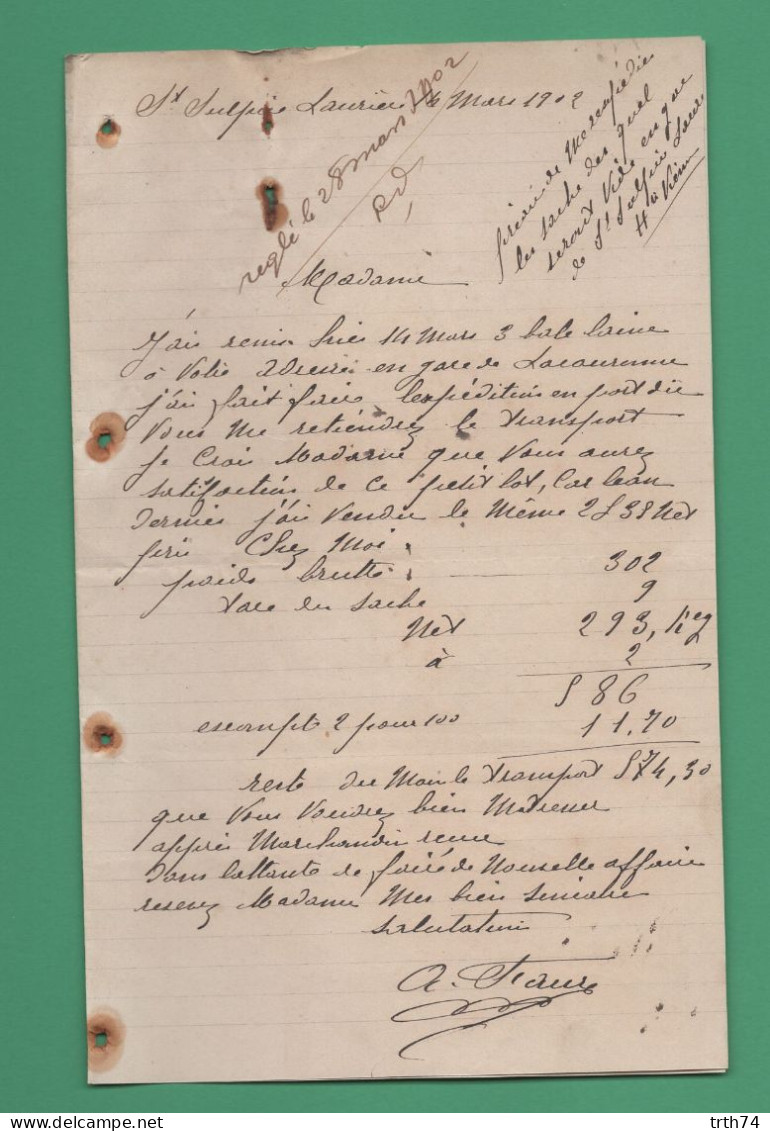 St Sulpice Laurière 14 Mars 1902
reglé le 28 mars 1902
prière de Me réexpédier
les sache des quel
serait Vide en gare
de St Sulpice Laure
Hte Vienne
Madame
J'ais remis hier 14 Mars 3 bale laine
à Votre adresse en gare de Lacouronne
j'ai fait faire l'expédition en port dû
Vous me retiendrez le transport
Je Crois Madame que Vous aurez
satisfaction de ce petit lot, Car lean
dernier j'ai Vendu le Même 2f 35 Net
pris Chez Moi
poids brutte 302
tare du sache 9
Net 293, Kg
à 2
586
escompte 2 pour 100 11.70
reste du Moin le transport 574,30
que Vous Voudrez bien
appres Marchandise reçue
Dans lattente de faire de Nouvelle affaire
recevez Madame Mes bien sincère
salutation
A. Faure
trth74